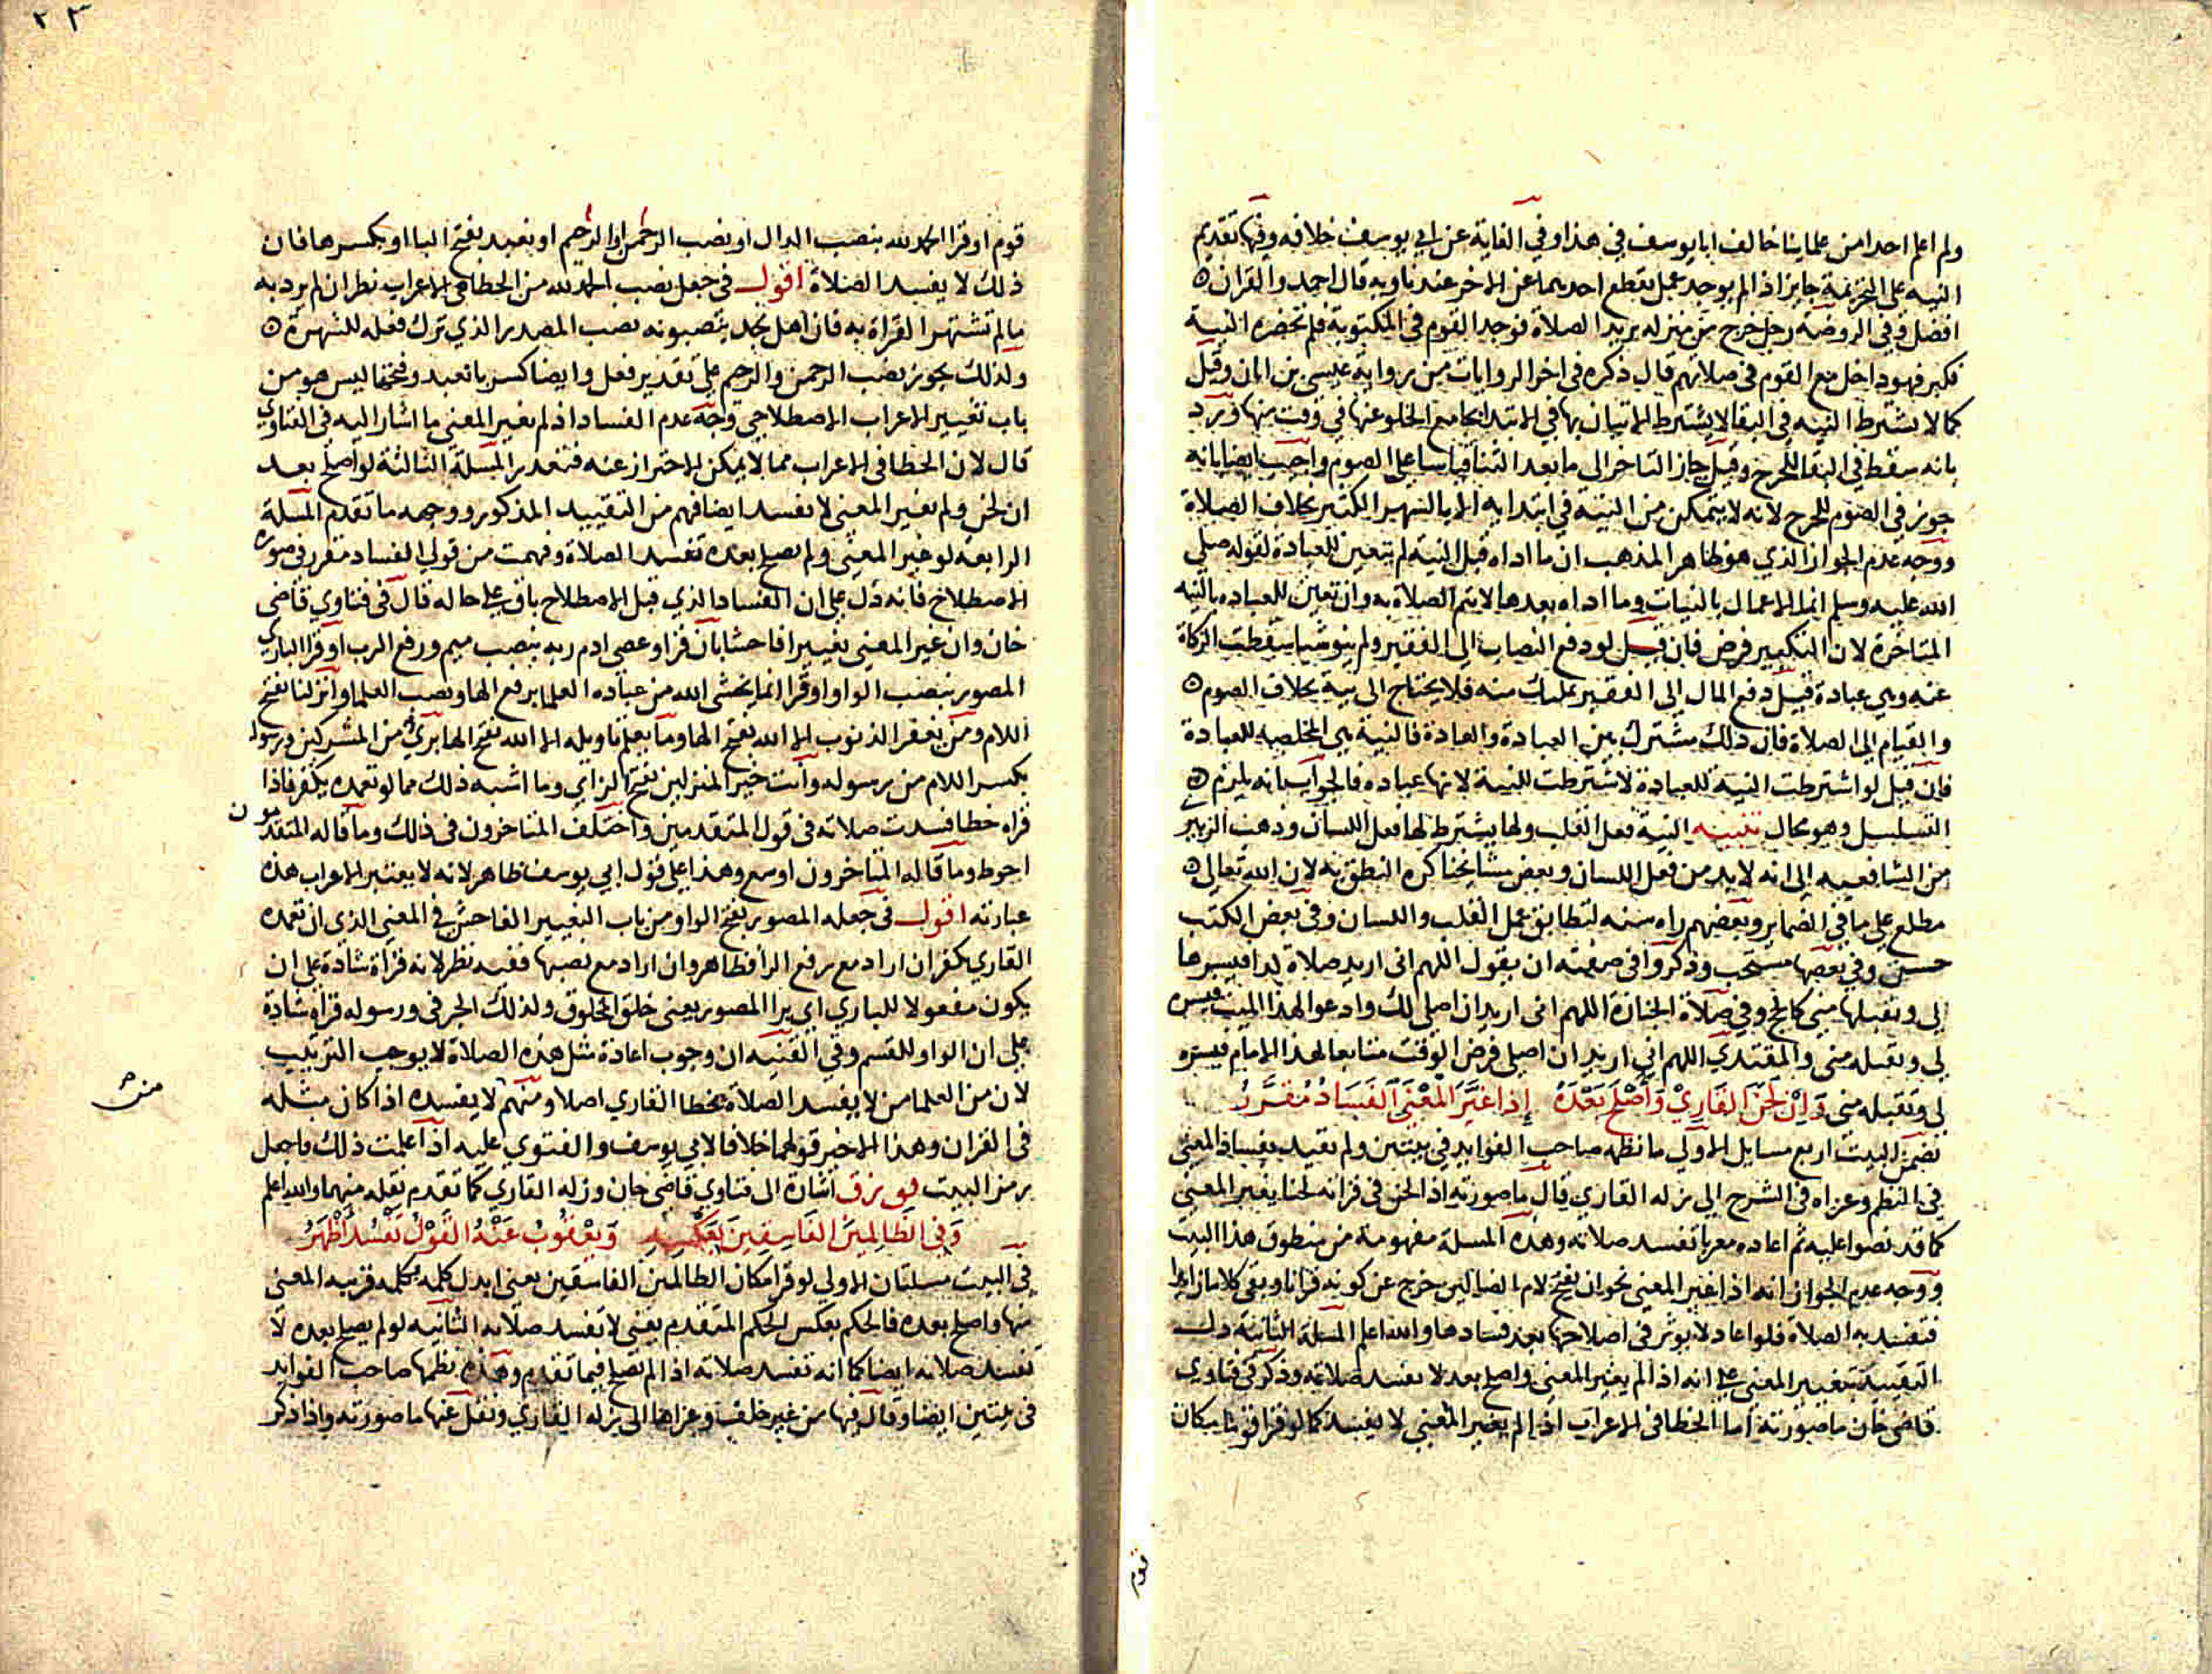 ولم اعلم احدا من علماينا خالف ابا يوسف في هذا وفي الغاية عن ابي يوسف خلافه وفيها تقديم
النيه على التحريمة جايز اذا لم يوجد عمل يقطع احديهما عن الاخر عندنا وبه قال احمد والقران
افضل وفي الروضة رجل خرج من منزله يريد الصلاة فوجد القوم في المكتوبة فلم تحضره النية
فكبر فهو داخل مع القوم في صلاتهم قال ذكره في اخر الروايات من رواية عيسى بن ابان وقيل
كما لا يشترط النيه في البقا لا يشترط الاتيان بها في الابتدا بجامع الخلو عنها في وقت منها ورد
بانه سقط في البقا للحرج وقيل جاز التاخر الى ما بعد الثنا قياسا على الصوم واجيب ايضا بانه
جوز في الصوم للحرج لانه لا يتمكن من النية في ابتدايه الا بالسهر الكثير بخلاف الصلاة
ووجه عدم الجواز الذي هو ظاهر المذهب ان ما اداه قبل النية لم يتعين للعبادة لقوله صلى
الله عليه وسلم انما الاعمال بالنيات وما اداه بعدها لا يتم الصلاة به وان تعين للعباده بالنيه
المتاخرة لان التكبير فرض فان قيل لو دفع النصاب الى الفقير ولم ينو شيا سقطت الزكاة
عنه وهي عبادة قيل دفع المال الى الفقير تمليك منه فلا يحتاج الى نية بخلاف الصوم
والقيام الى الصلاة فان ذلك مشترك بين العبادة والعادة فالنية هي المخلصه للعبادة
فان قيل لو اشترطت النية للعبادة لاشترطت للنية لانها عباده فالجواب انه يلزم
التسلسل وهو محال تنبيه النية فعل القلب ولها يشترط لها فعل اللسان وذهب الزبير
من الشافعيه الى انه لا بد من فعل اللسان وبعض مشايخنا كره النطق به لان الله تعالى
مطلع على ما في الضماير وبعضهم راه سنه لتطابق عمل القلب واللسان وفي بعض الكتب
حسن وفي بعضها مستحب وذكروا في صفته ان يقول اللهم اني اريد صلاة كذا فيسرها
لي وتقبلها مني كالحج وفي صلاة الجنازة اللهم اني اريد ان اصلي لك وادعو لهذا الميت فيسره
لي وتقبله مني والمقتدي اللهم اني اريد ان اصلي فرض الوقت متابعا لهذا الامام فيسره
لي وتقبله مني وَإِنْ لَحَنَ القَارِيْ وَأَصْلَحَ بَعْدَهُ إذا غَيَّرَ المَعْنَى الفَسَادُ مُقَرَّرُ
تضمن البيت اربع مسايل الاولى ما نظمه صاحب الفوايد في بيتين ولم يقيد بفساد المعنى
في النظم وعزاه في الشرح الى زله القاري قال ما صورته اذا لحن في قراته لحنا يغير المعنى
كما قد نصوا عليه ثم اعاده معربا تفسد صلاته وهذه المسلة مفهومة من منطوق هذا البيت
ووجه عدم الجواز انه اذا غير المعنى نحو ان يفتح لام الضالين خرج عن كونه قرانا وبقي كلاما زايدا
فتفسد به الصلاة فلو اعاد لا يوثر في اصلاحها بعد فسادها والله اعلم المسلة الثانية دلت
التقييد بتغيير المعنى على انه اذا لم يغير المعنى واصلح بعد لا تفسد صلاته وذكر في فتاوي
قاضي خان ما صورته اما الخطا في الاعراب اذا لم يغير المعنى لا يفسد كما لو قرا قوما مكان
قوم او قرا الحمد لله بنصب الدال او نصب الرحمن او الرحيم او نعبد بفتح البا او بكسرها فان
ذلك لا يفسد الصلاة اقول في جعل نصب الحمد لله من الخطا في الاعراب نظر ان لم يرد به
ما لم تشتهر القراة به فان اهل نجد ينصبونه نصب المصدر الذي ترك فعله للشهرة
ولذلك يجوز نصب الرحمن والرحيم على تقدير فعل وايضا كسر با نعبد وفتحها ليس هو من
باب تغيير الاعراب الاصطلاحي وجه عدم الفساد اذا لم يغير المعنى ما اشار اليه في الفتاوي
قال لان الخطا في الاعراب مما لا يمكن الاحتراز عنه فتعذر المسلة الثالثة لو اصلح بعد
ان لحن ولم يغير المعنى لا تفسد ايضا فهم من التقييد المذكور ووجهه ما تقدم المسلة
الرابعة لو غير المعنى ولم يصلح بعده تفسد الصلاة وفهمت من قولي الفساد مقرر في صورة
الاصطلاح فانه دل على ان الفساد الذي قبل الاصطلاح باق على حاله قال في فتاوي قاضي
خان وان غير المعنى تغييرا فاحشا بان قرا وعصى ادم ربه بنصب ميم ورفع الرب او قرا الباري
المصور بنصب الواو او قرا انما يخشى الله من عباده العلما برفع الها ونصب العلما وانزلنا بفتح
اللام ومن يغفر الذنوب الا الله بفتح الها وما يعلم تاويله الا الله بفتح الها بري من المشركين ورسوله
بكسر اللام من رسوله وانت خير المنزلين بفتح الزاي وما اشبه ذلك مما لو تعمده يكفر فاذا
قراه خطا فسدت صلاته في قول المتقدمين واختلف المتاخرون في ذلك وما قاله المتقدمون
احوط وما قاله المتاخرون اوسع وهذا على قول ابي يوسف ظاهر لانه لا يعتبر الاعراب هذه
عبارته اقول في جعله المصور بفتح الواو من باب التغيير الفاحش في المعنى الذي ان تعمده
القاري كفر ان اراد مع رفع الرا فظاهر وان اراد مع نصبها ففيه نظر لانه قراة شاذة على ان
يكون مفعولا للباري اي برا المصور يعني خلق المخلوق ولذلك الجر في ورسوله قراه شاذة
على ان الواو للقسم وفي القنيه ان وجوب اعادة مثل هذه الصلاة لا يوجب الترتيب
لان من العلما من لا يفسد الصلاة بخطا القاري اصلا ومنهم لا يفسده اذا كان مثله
في القران وهذا الاخير قولهما خلافا لابي يوسف والفتوي عليه اذا علمت ذلك فاجعل
رمز البيت اشارة الى فتاوي قاضي خان وزله القاري كما تقدم نقله منهما والله اعلم
وَفِي الظَّالِمِيْنَ الفَاسِقِيْنَ بِعَكْسِهِ وَيَعْقُوبُ عَنْهُ القَوْلُ تَفْسُدُ أَظْهَرُ
في البيت مسلتان الاولى لو قرا مكان الظالمين الفاسقين يعني ابدل كلمه بكلمه قريبه المعنى
منها واصلح بعده فالحكم بعكس الحكم المتقدم يعني لا تفسد صلاته الثانيه لو لم يصلح بعده لا
تفسد صلاته ايضا كما انه تفسد صلاته اذا لم يصلح فيما تقدم وهذه نظمها صاحب الفوايد
في بيتين ايضا وقال فيها من غير خلف وعزاها الى زله القاري ونقل عنها ما صورته واذا ذكر